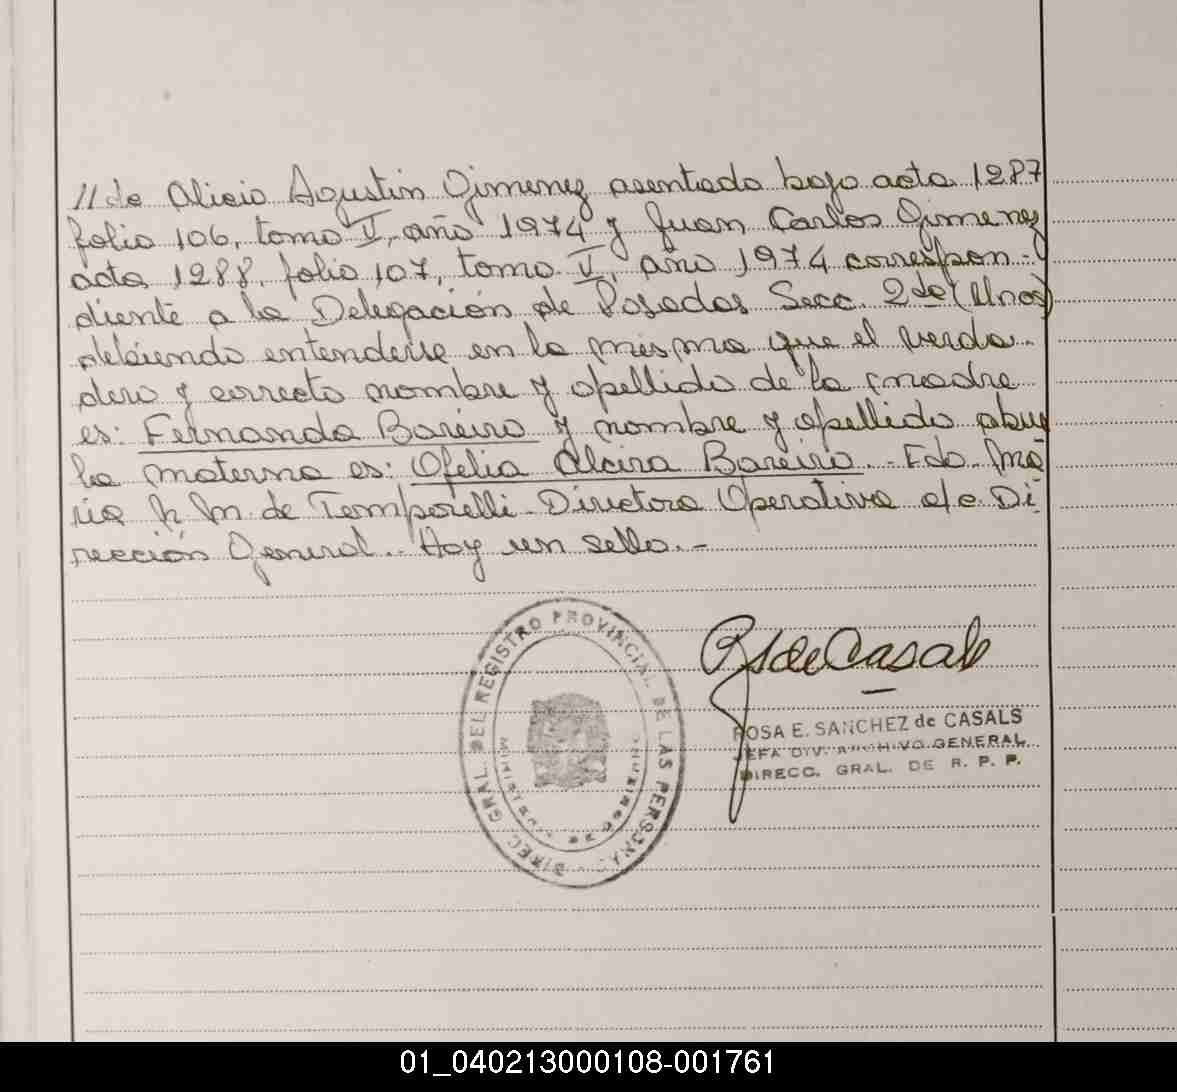 //de Alicio Agustin Gimenez asentado bajo acta 1287
folio 106, tomo V, año 1974 y Juan Carlos Gimenez
acta 1288, folio 107, tomo V, año 1974 correspon-
diente a la Delegación de Posadas Secc. 2da (Mnes)
debiendo entenderse en la misma que el verda-
dero y correcto nombre y apellido de la madre
es: Fernanda Bareiro y nombre y apellido abue
la materna es: Ofelia Alcira Bareiro.- Fdo. Ma
ria h m de Temporelli- Directora Operativa a/c Di-
rección General.- Hay un sello.-
DIREC. GRAL. DEL REGISTRO PROVINCIAL DE LAS PERSONAS
ROSA E. SANCHEZ de CASALS
JEFA DIV. ARCHIVO GENERAL
DIRECC. GRAL. DE R. P. P.
01_040213000108-001761